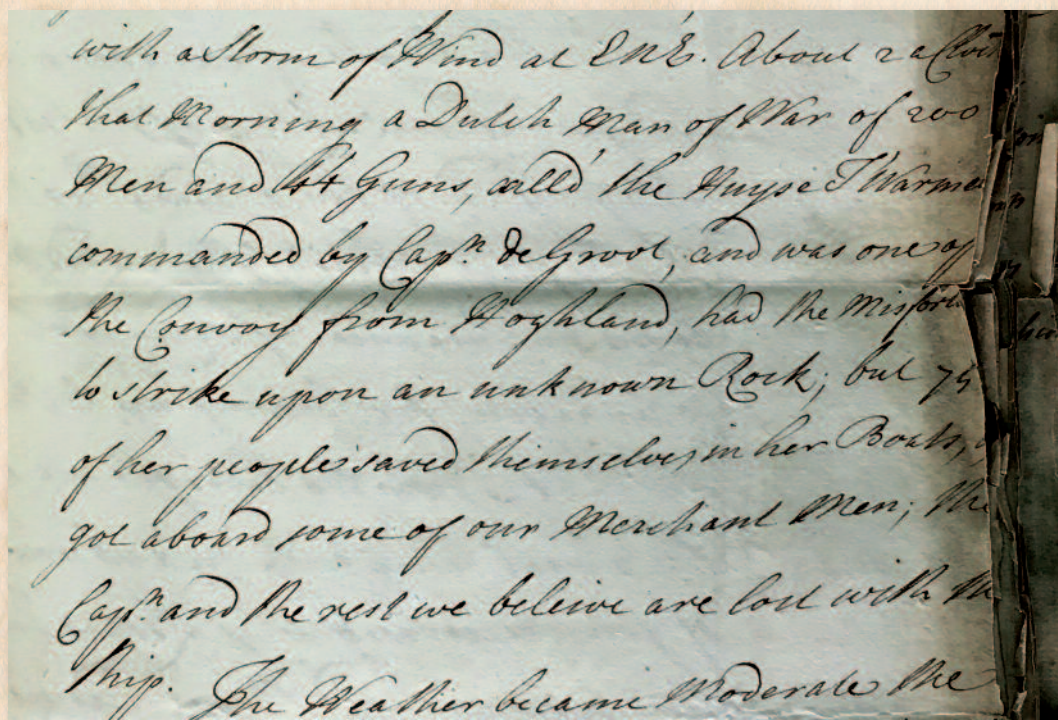 with a Storm of Wind at ENE. About 2 a Clo
that Morning a Dutch Man of War of 200
Men and 44 Guns, call'd the Huyse T'Warme
commanded by Cap.n de Groot, and was one of
the Convoy from Hoghland, had the Misfort
to strike upon an unknown Rock; but 75
of her people saved themselves in her Boats,
got aboard some of our Merchant Men; the
Cap.n and the rest we beleive are lost with the
Ship. The Weather became Moderate the